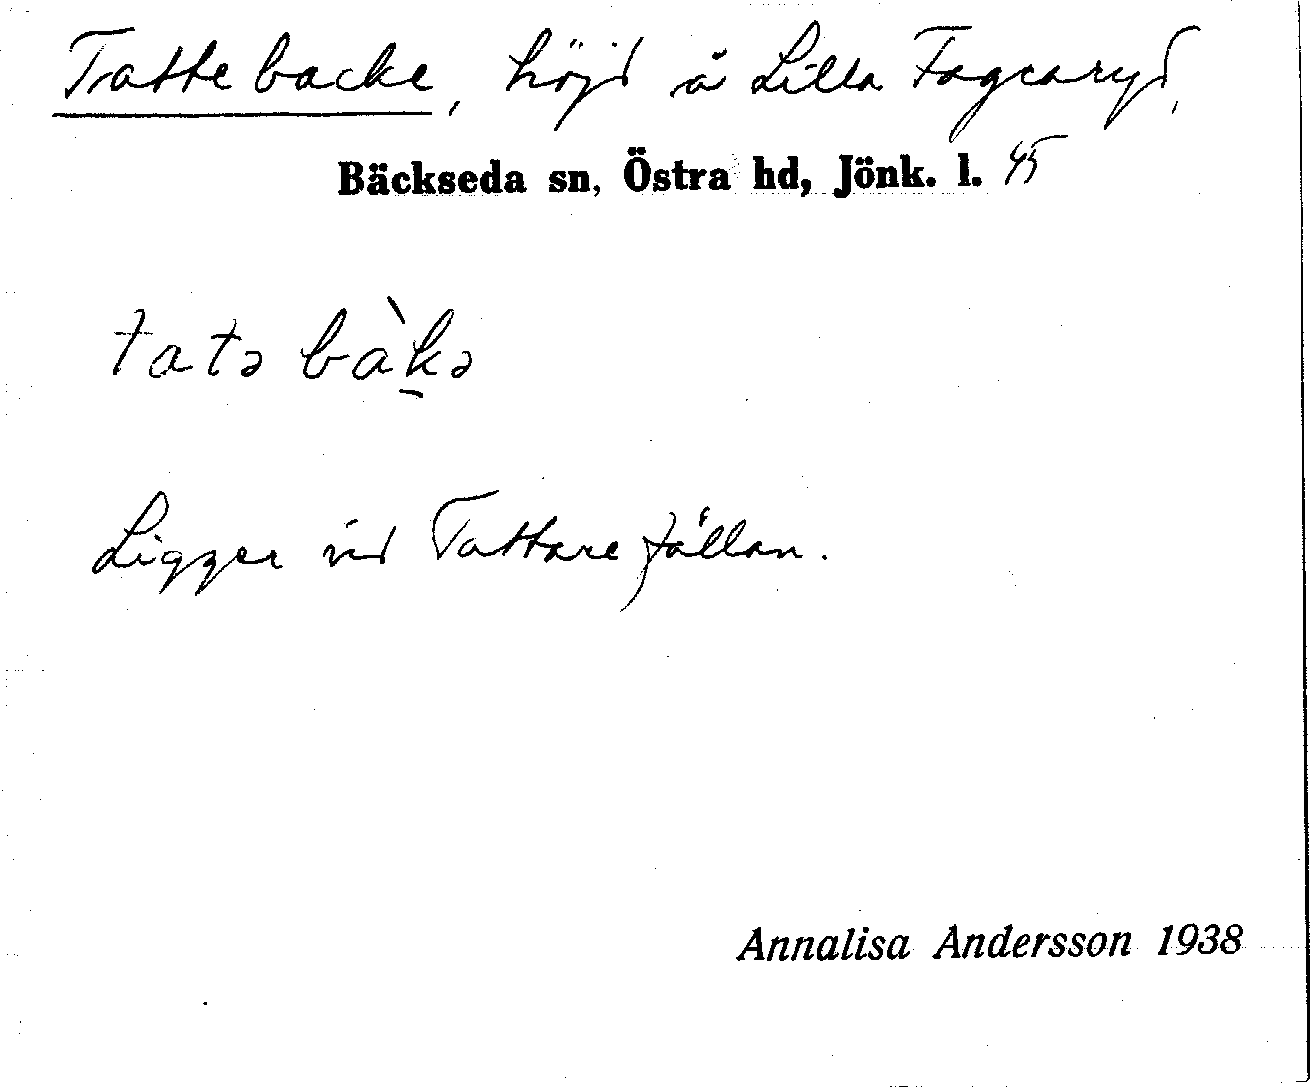 Tattebacke, höjd å Lilla Fagcaryd,
Bäckseda sn, Östra hd, Jönk. l. 45
tatə bàkə
Ligger vid Tattarefällan.
Annalisa Andersson 1938